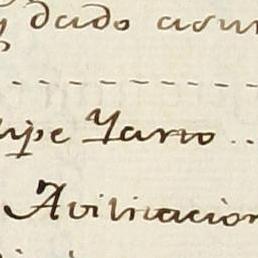 y dado asun
lipe Yarro ..
Avilitacion